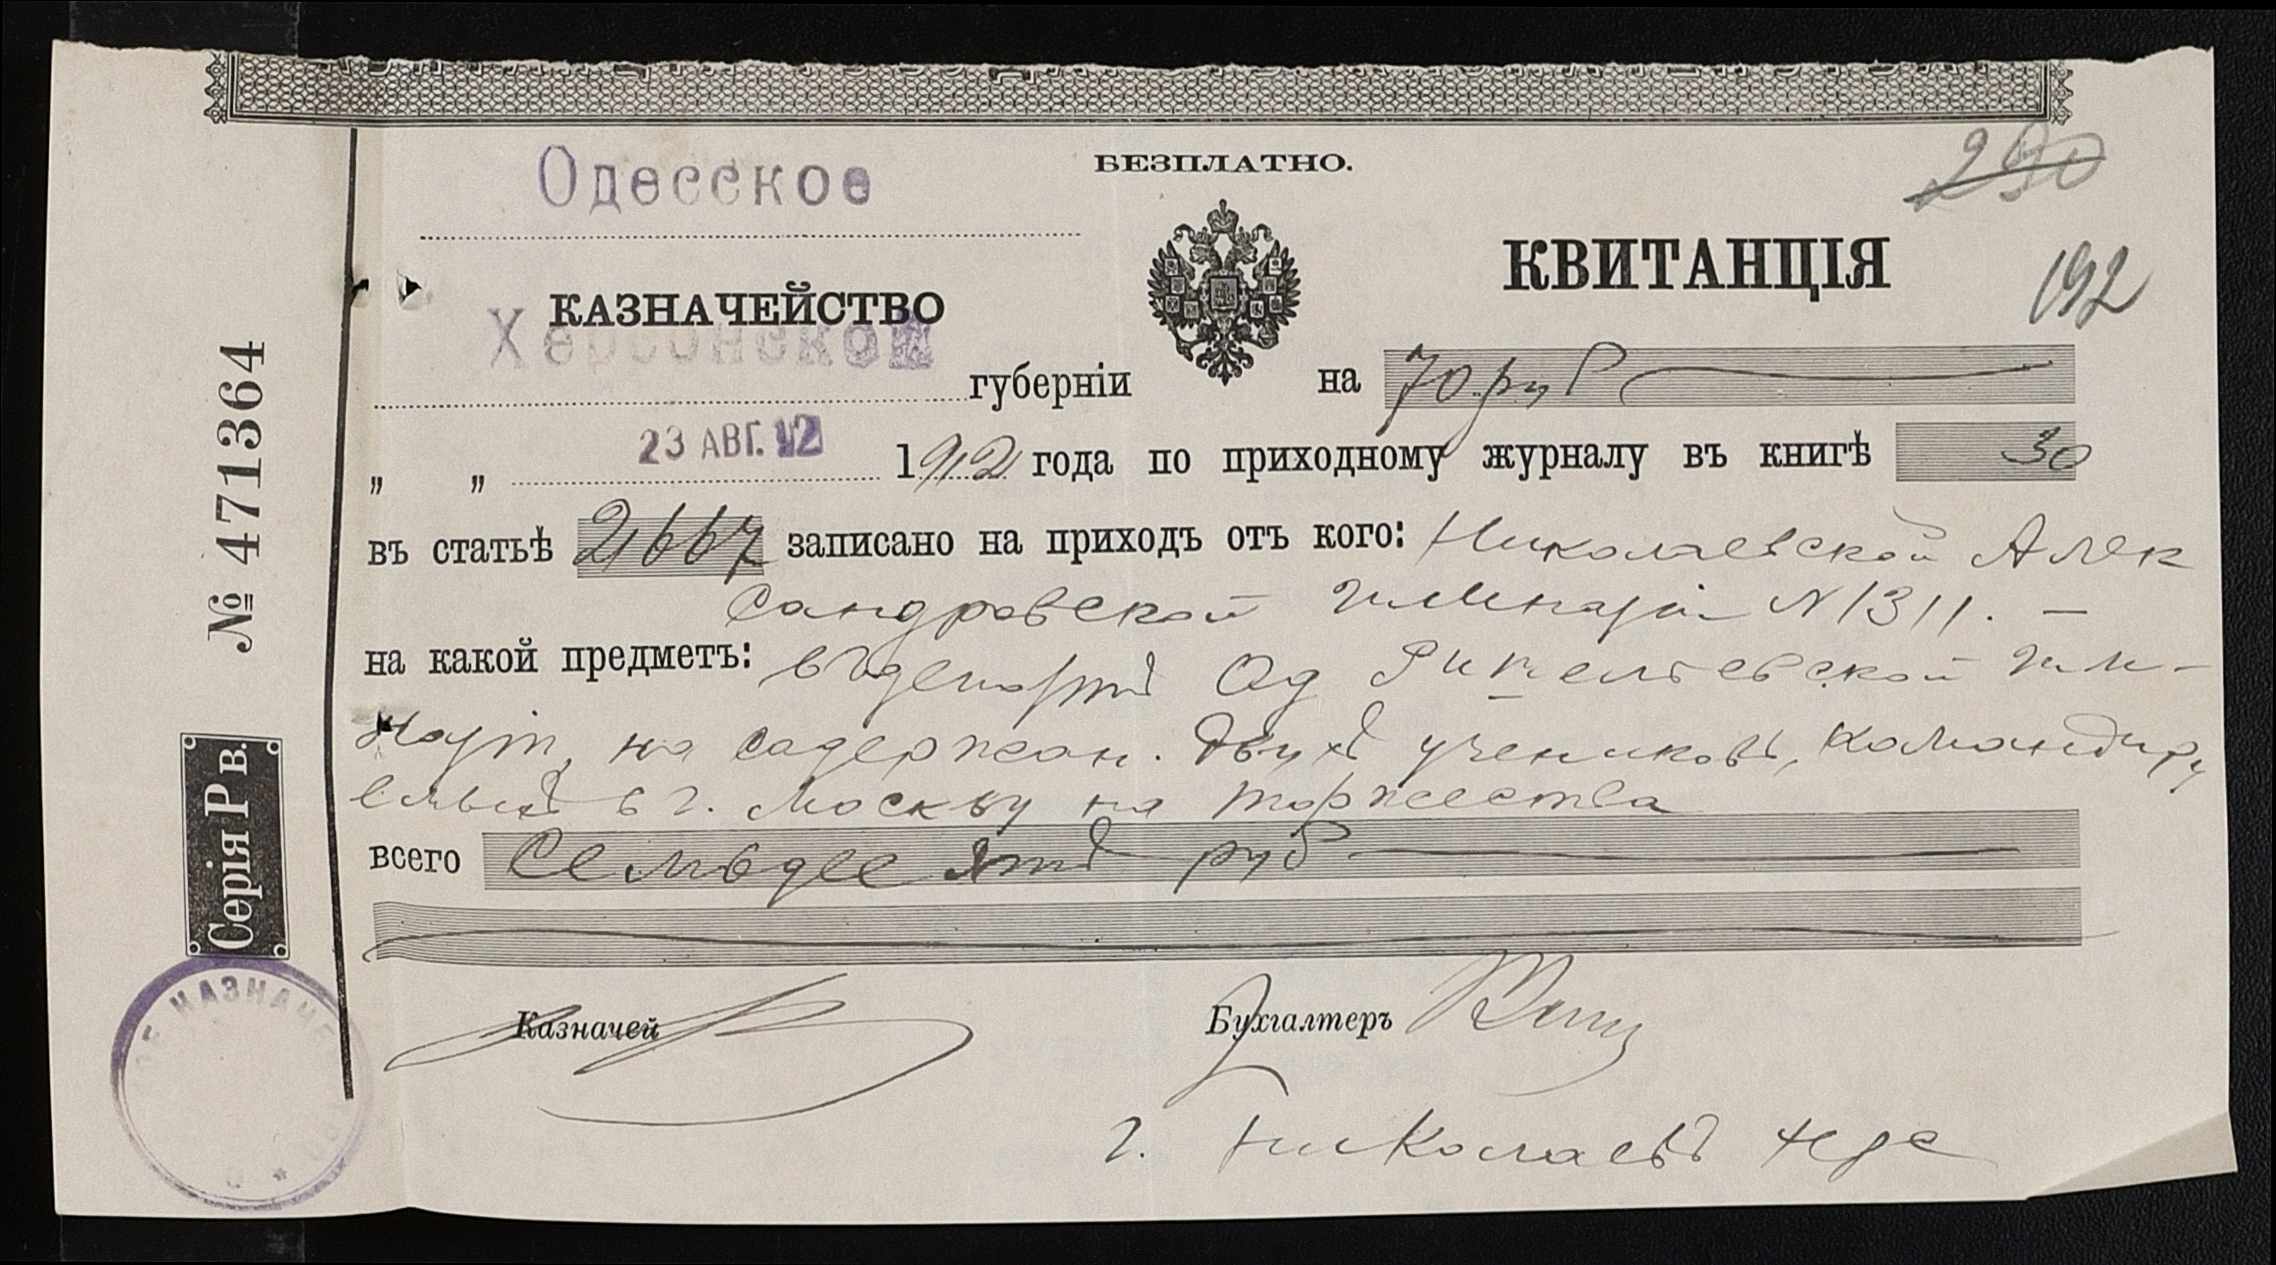 БЕЗПЛАТНО.
290
Одесское
КВИТАНЦІЯ
192
КАЗНАЧЕЙСТВО
Херсонской
губерніи
на 70 руб
" " 23 АВГ. 12 1912 года по приходному журналу въ книгѣ 30
въ статьѣ 21667 записано на приходъ отъ кого: Николаевской Алек
сандровской гимназіи N 1311. —
на какой предметъ: въ депозитъ Од Ришельевской гим-
назіи, на содержан. двухъ учениковъ, командиру
емыхъ в г. Москву на торжества
всего Семьдесятъ руб
Казначей
Бухгалтеръ
г. Николаевъ
№ 471364
Серія Р в.
КАЗНАЧЕ